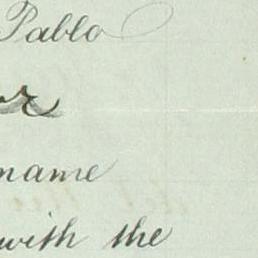 Pablo
name
with the